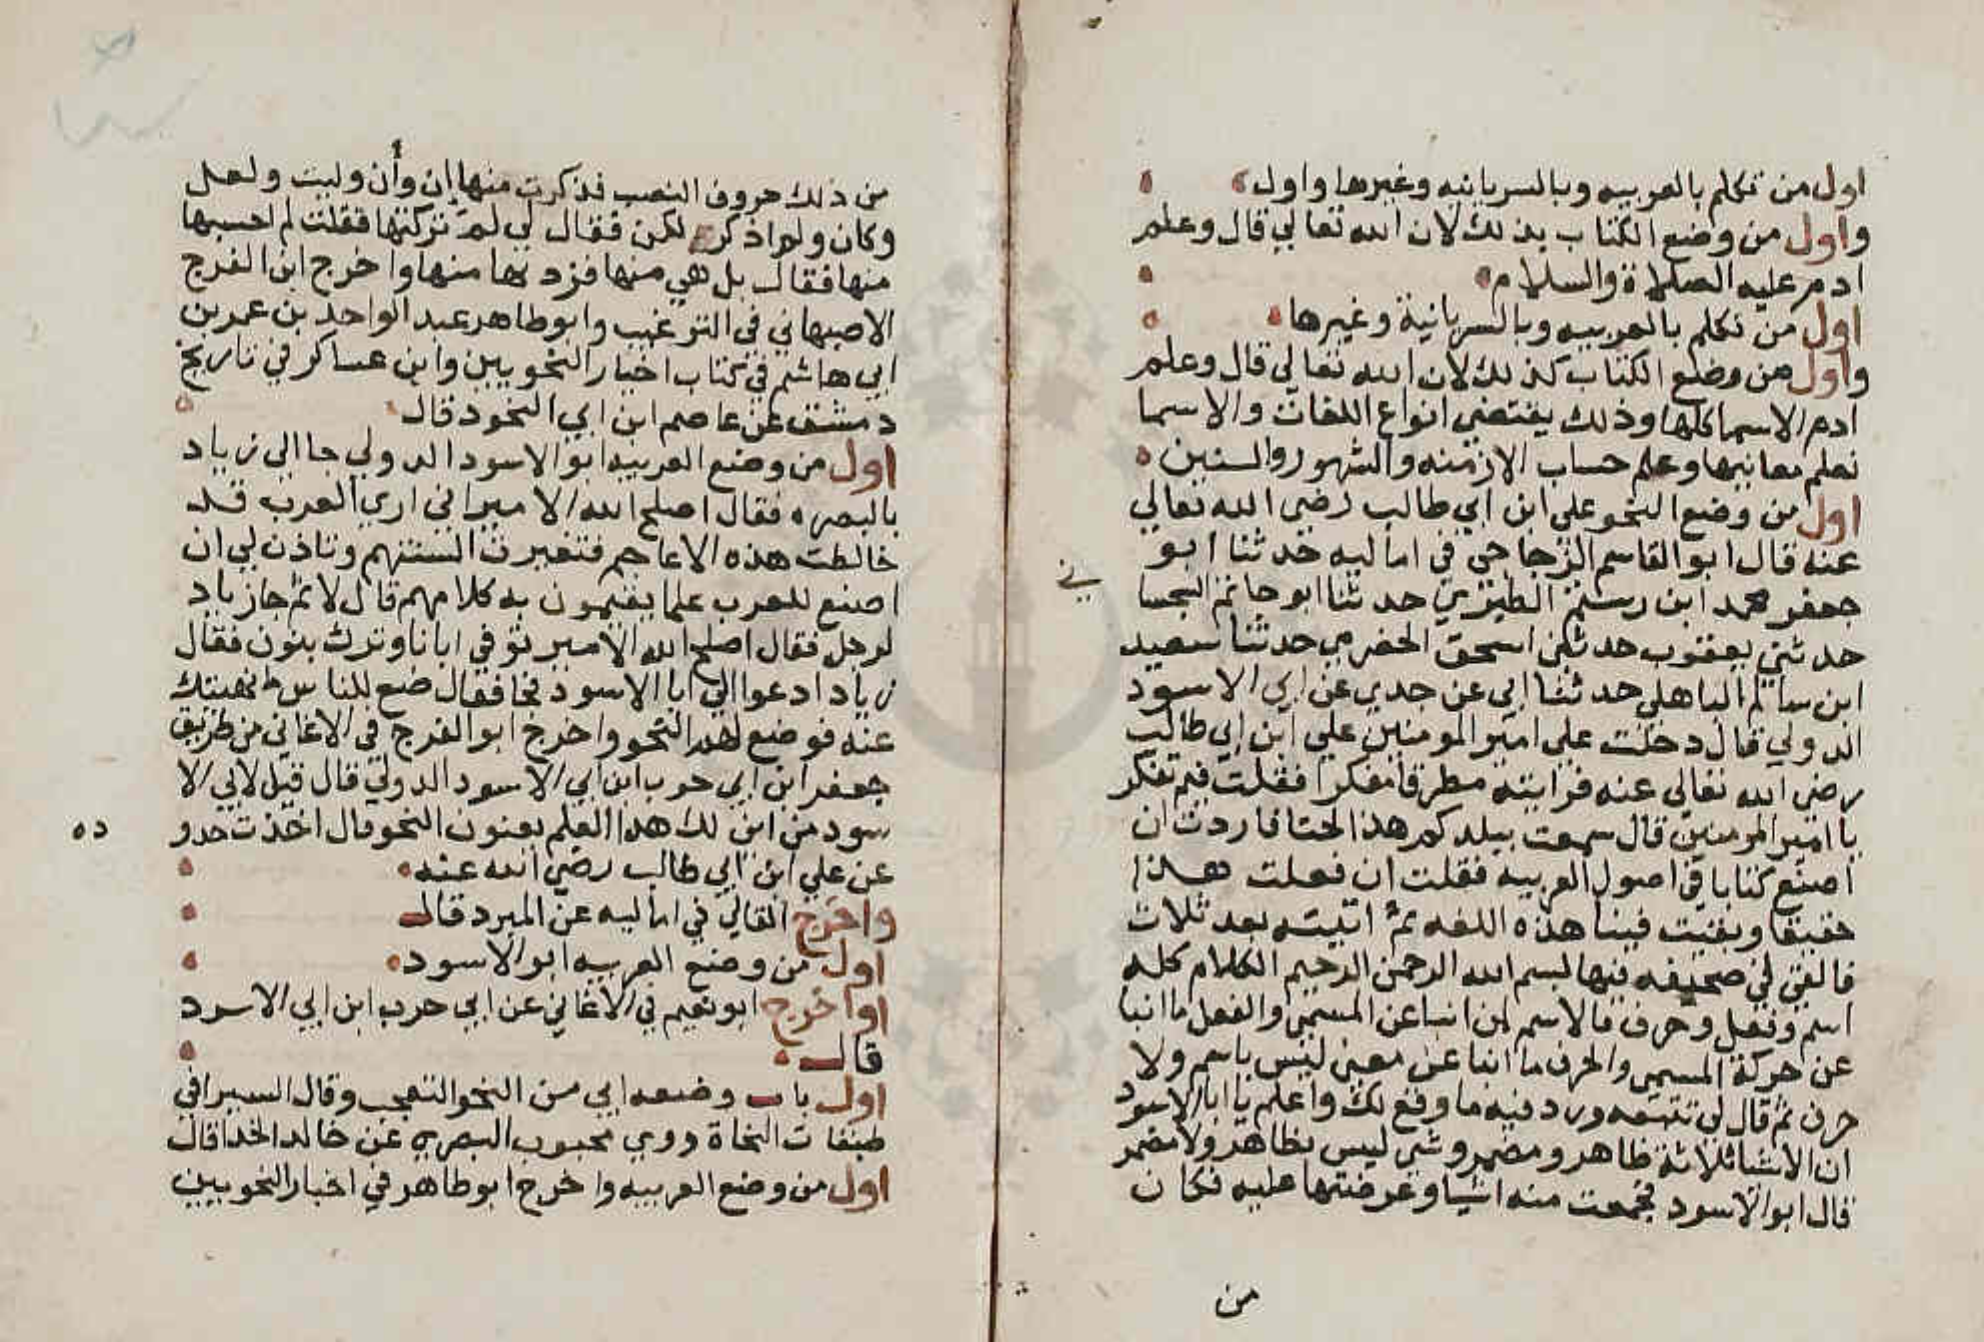 اول من تكلم بالعربيه وبالسريانيه وغيرها واول
واول من وضع الكتاب بذلك لان الله تعالي قال وعلم
ادم عليه الصلاة والسلام
اول من تكلم بالعربيه وبالسريانية وغيرها
واول من وضع الكتاب كذلك لان الله تعالي قال وعلم
ادم الاسما كلها وذلك يقتضي انواع اللغات والاسما
تعلم معانيها وعلم حساب الازمنه والشهور والسنين
اول من وضع النحو علي ابن ابي طالب رضي الله تعالي
عنه قال ابو القاسم الزجاجي في اماليه حدثنا ابو
جعفر محمد ابن رستم الطبري حدثنا ابو حاتم السجسا
ني
حدثني يعقوب ابن اسحق الحضرمي حدثنا سعيد
ابن سالم الباهلي حدثنا ابي عن جدي عن ابي الاسود
الدولي قال دخلت علي امير المومنين علي ابن ابي طالب
رضي الله تعالي عنه فرايته مطرقا مفكرا فقلت فيم تفكر
يا امير المومنين قال سمعت ببلدكم هذا لحنا فاردت ان
اصنع كتابا في اصول العربيه فقلت ان فعلت هذا
وبقيت فينا هذه اللغه ثم اتيته بعد ثلاث
فالقي لي صحيفه فيها بسم الله الرحمن الرحيم الكلام كله
اسم وفعل وحرف فالاسم من انبا عن المسمي والفعل ما انبا
عن حركة المسمي والحرف ما انبا عن معني ليس باسم ولا
حرف ثم قال لي تتبعه وزد فيه ما وقع لك واعلم يا ابا الاسود
ان الاشيا ثلاثة ظاهر ومضمر وشي ليس بظاهر ولا مضمر
قال ابو الاسود فجمعت منه اشيا وعرضتها عليه فكان
من
من ذلك حروف النصب فذكرت منها إن وأن وليت ولعل
وكان ولم اذكر لكن فقال لي لم تركتها فقلت لم احسبها
منها فقال بل هي منها فزدتها منها واخرج ابن الفرج
الاصبهاني في الترغيب وابو طاهر عبد الواحد بن عمر بن
ابي هاشم في كتاب اخبار النحويين وابن عساكر في تاريخ
دمشق عن عاصم ابن ابي النجود قال
اول من وضع العربيه ابو الاسود الدولي جا الي زياد
بالبصره فقال اصلح الله الامير اني اري العرب قد
خالطت هذه الاعاجم فتغيرت السنتهم وتاذن لي ان
اصنع للعرب علما يقيمون به كلامهم قال لا ثم جا زياد
لرجل فقال اصلح الله الامير توفي ابانا وترك بنون فقال
زياد ادعوا الي ابا الاسود فجا فقال ضع للناس ما نهيتك
عنه فوضع لهم النحو واخرج ابو الفرج في الاغاني من طريق
جعفر ابن ابي حرب ابن ابي الاسود الدولي قال قيل لابي الا
سود من اين لك هذا العلم يعنون النحو قال اخذت حدو
ده
عن علي ابن ابي طالب رضي الله عنه
واخرج القالي في اماليه عن المبرد قال
اول من وضع العربيه ابو الاسود
واخرج ابو نعيم في الاغاني عن ابي حرب ابن ابي الاسود
قال
اول باب وضعه ابي من النحو التعجب وقال السيرافي
طبقات النحاة روي محبوب البصري عن خالد الحذا قال
اول من وضع العربيه واخرج ابو طاهر في اخبار النحويين